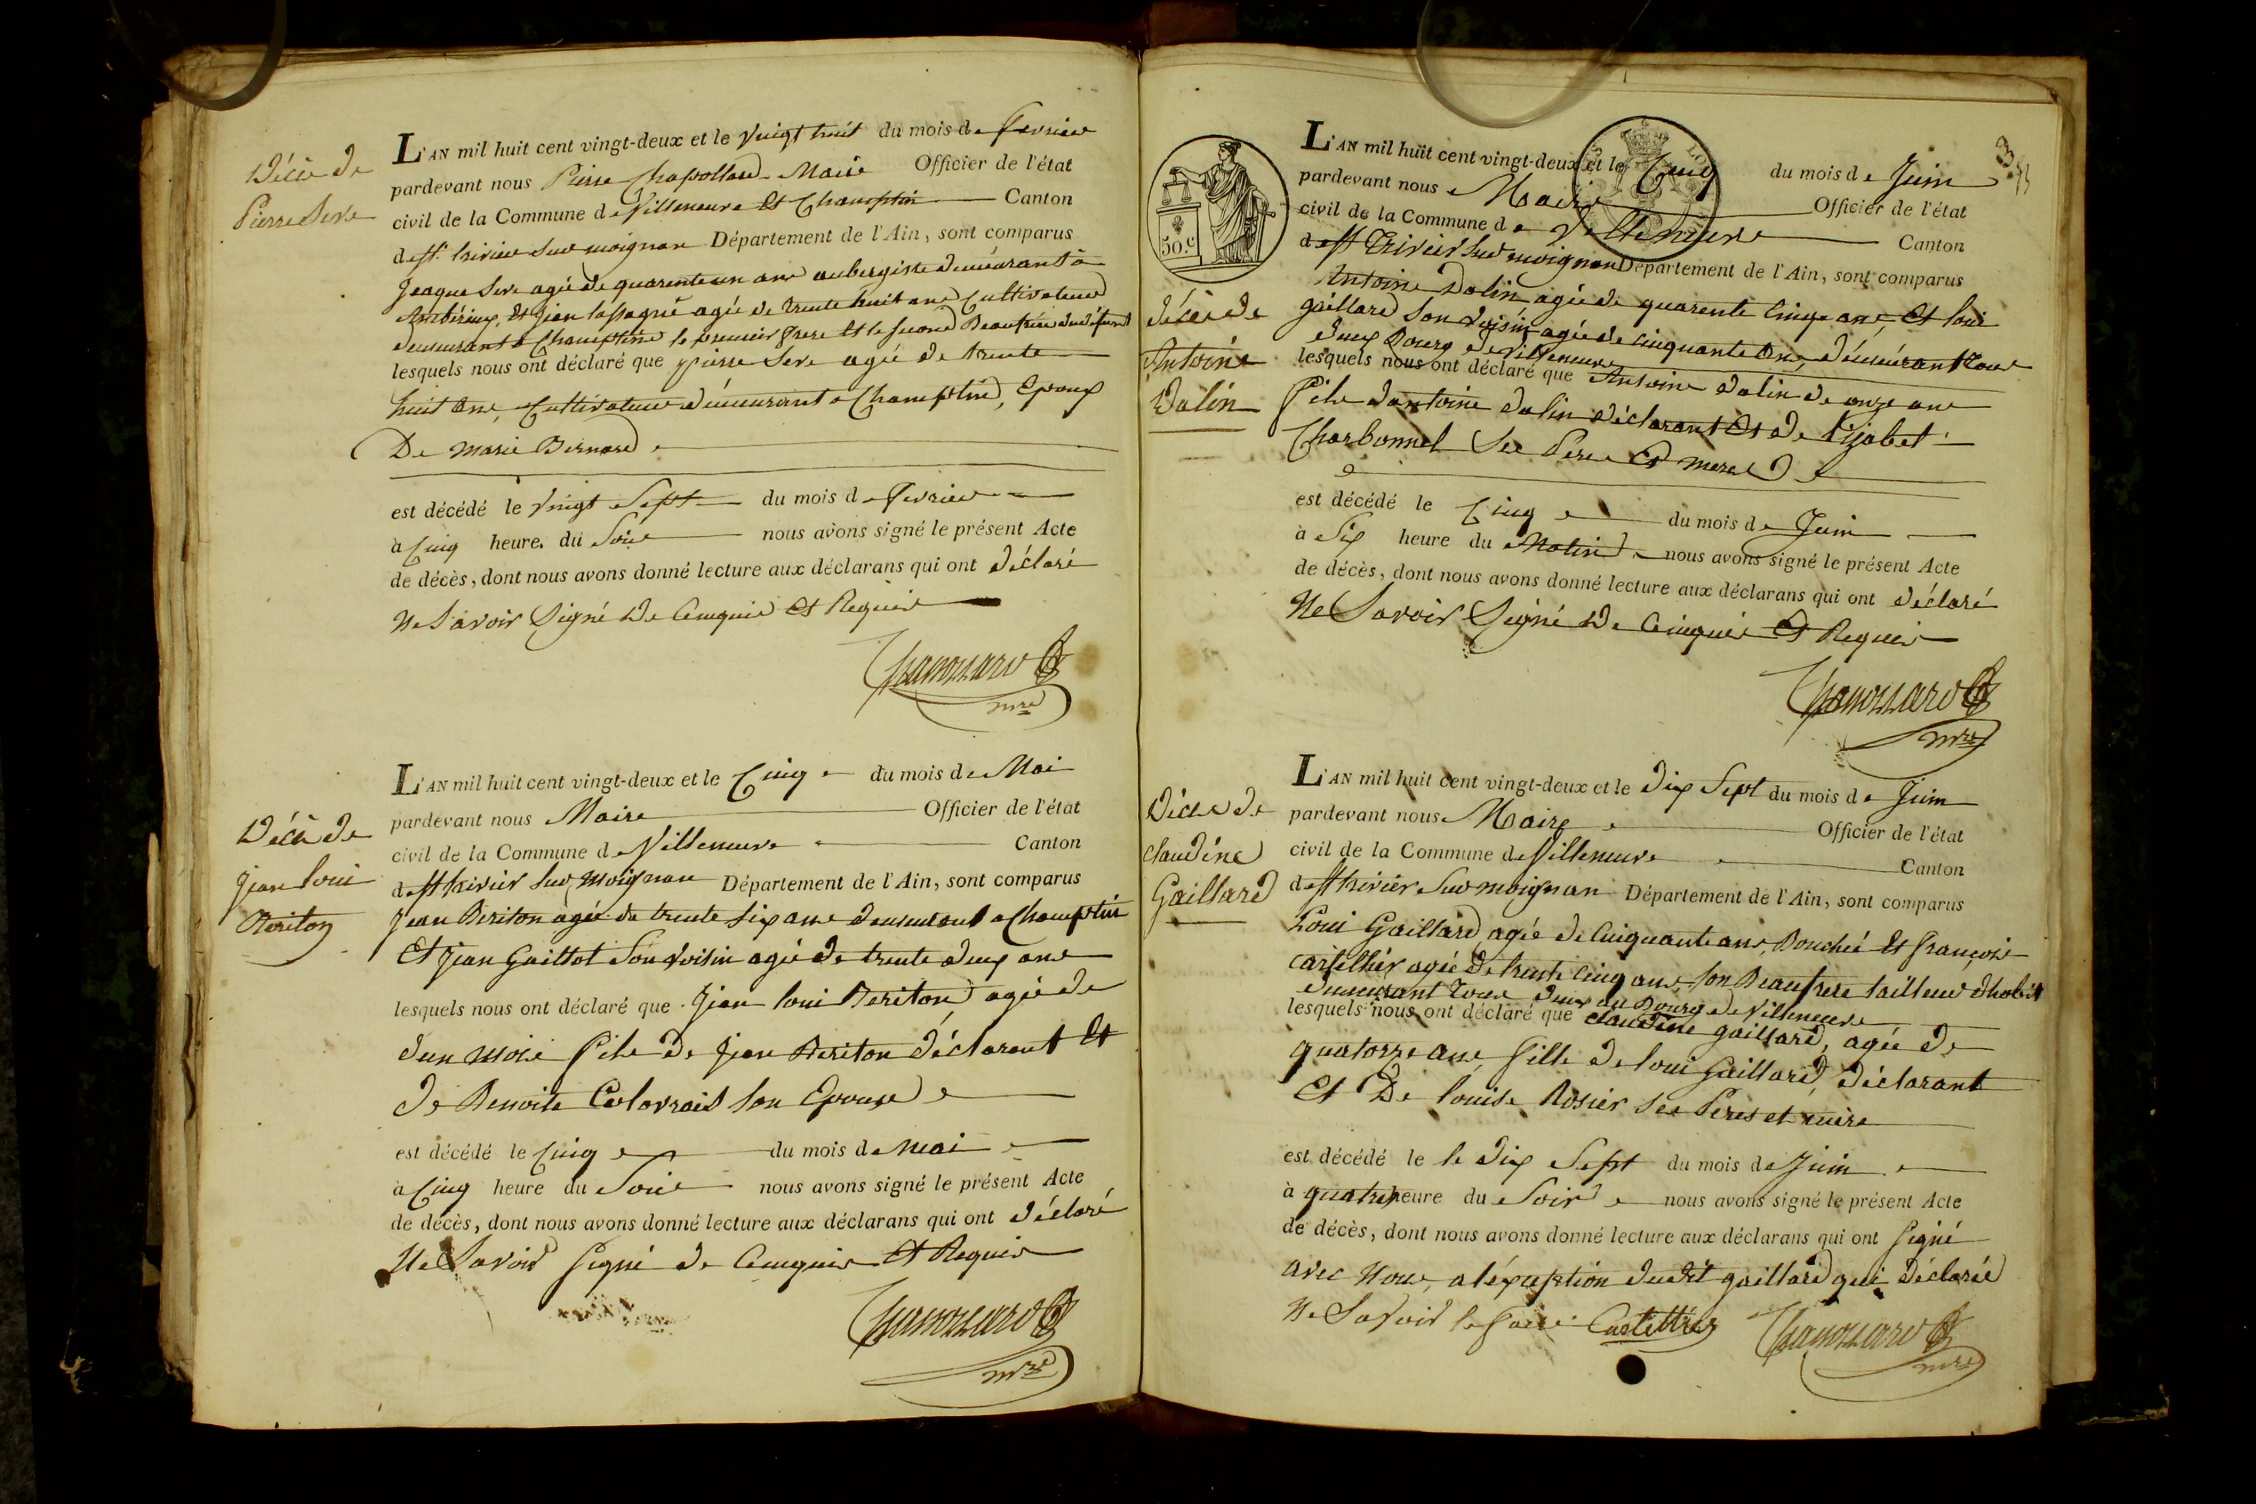 Décè de
Pierre Sere
L'AN mil huit cent vingt-deux et le vingt huit du mois de fevrier
pardevant nous Pierre Chapollard Maire Officier de l'état
civil de la Commune de Villeneuve et Champtin Canton
de St trivier sur moignan Département de l'Ain, sont comparus
Jeaque Sere agée de quarente un ans aubergiste demeurant à
Ambérieux, et Jean lassagne agée de trente huit ans Cultivateur
demeurant à Champtin le premier frere et le second Beaufrere du défunt
lesquels nous ont déclaré que pierre Sere agée de trente
huit ans, Cultivateur demeurant a Champtin, Epoux
De marie Bernard
est décédé le vingt Sept du mois de fevrier
à Cinq heure du Soir nous avons signé le présent Acte
de décès, dont nous avons donné lecture aux déclarans qui ont déclaré
Ne Savoir Signé De Cenquis et Requis
mre
Décè de
jean loui
Beriton
L'AN mil huit cent vingt-deux et le Cinq du mois de Mai
pardevant nous Maire Officier de l'état
civil de la Commune de Villeneuve Canton
de St trivier sur moignan Département de l'Ain, sont comparus
Jean Beriton agée de trente six ans demeurant a Champtin
Et jean Guillot Son Voisin agée de trente deux ans
lesquels nous ont déclaré que Jean loui Beriton agée de
d'un mois file de jean Beriton déclarant et
de Benoite Colovrais son Epouse
est décédé le Cinq du mois de mai
à Cinq heure du Soir nous avons signé le présent Acte
de décès, dont nous avons donné lecture aux déclarans qui ont déclaré
Ne Savoir Signé de Cenquis et Requis
mre
3
50.c
décè de
Antoine
Dalin
L'AN mil huit cent vingt-deux et le Cinq du mois de Juin
pardevant nous Maire Officier de l'état
civil de la Commune de Villeneuve Canton
de St Trivier sur moignan Département de l'Ain, sont comparus
Antoine Dalin agée de quarente Cinq ans, et loui
gaillard son voisin agée de cinquante ans, demeurant tous
deux Bourg de villeneuve
lesquels nous ont déclaré que Antoine dalin de onze ans
file d'antoine dalin déclarant et de Elizabet
Charbonnel ses Pere et mere
est décédé le Cinq du mois de Juin
à Six heure du Matin nous avons signé le présent Acte
de décès, dont nous avons donné lecture aux déclarans qui ont déclaré
Ne Savoir Signé de Cenquis et Requis
mre
Décè de
claudine
Gaillard
L'AN mil huit cent vingt-deux et le dix Sept du mois de Juin
pardevant nous Maire Officier de l'état
civil de la Commune de Villeneuve Canton
de St trivier sur moignan Département de l'Ain, sont comparus
Loui Gaillard agée de Cinquante ans, Bouché et françois
agée de trente cinq ans son Beaufrere tailleur d'habit
demeurant tous deux au Bourg de Villeneuve
lesquels nous ont déclaré que claudine gaillard, agée de
quatorze ans fille de loui Gaillard déclarant
Et De louise Rosier ses Peres et mere
est décédé le le dix Sept du mois de Juin
à quatre heure du Soir nous avons signé le présent Acte
de décès, dont nous avons donné lecture aux déclarans qui ont Signé
avec Nous, a l'éxception dudit gaillard qui déclaré
Ne Savoir le faire
mre